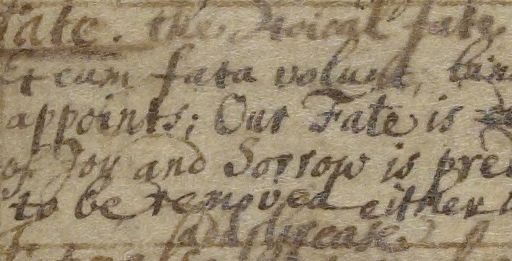 Fate. the Stoical fate
team fata volunt, bin
appoints; Our Fate is
of Joy and Sorrow is pre
to be removed either